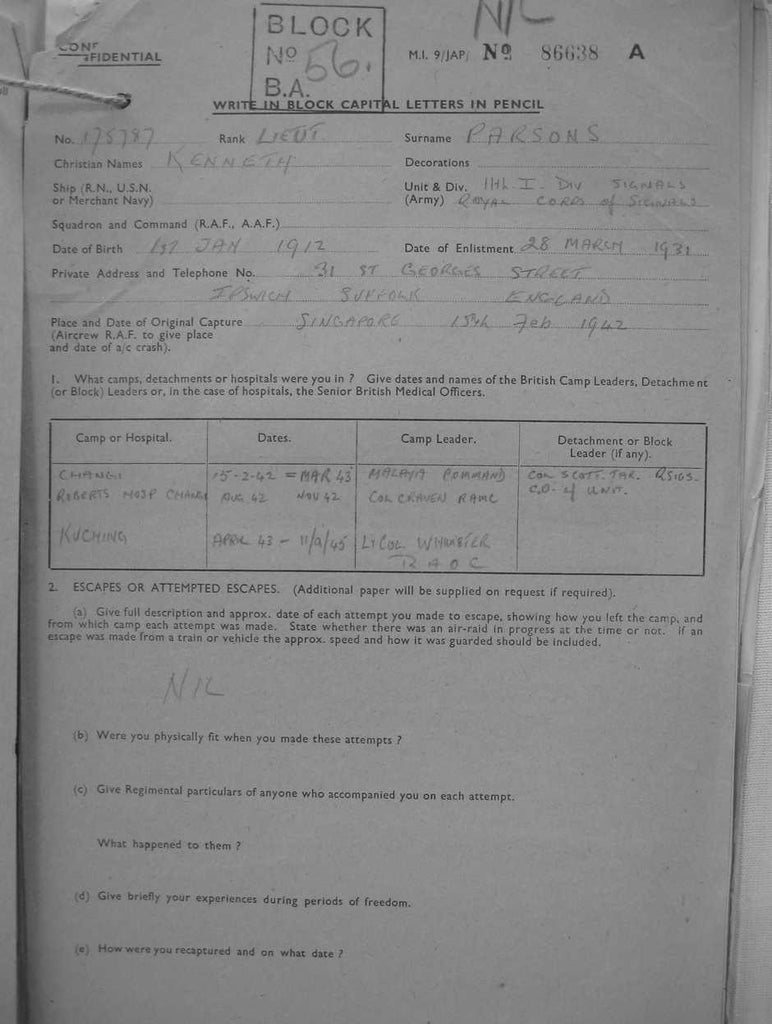 NIL
BLOCK
CONFIDENTIAL
No 56.
M.I. 9/JAP/ No 86638 A
B.A.
WRITE IN BLOCK CAPITAL LETTERS IN PENCIL
No. 175787 Rank LIEUT. Surname PARSONS
Christian Names KENNETH Decorations
Ship (R.N., U.S.N. or Merchant Navy)
Unit & Div. (Army) 11th I. DIV SIGNALS
ROYAL CORPS of SIGNALS
Squadron and Command (R.A.F., A.A.F.)
Date of Birth 1st JAN 1912 Date of Enlistment 28 MARCH 1931
Private Address and Telephone No. 31 ST GEORGES STREET
IPSWICH SUFFOLK ENGLAND
Place and Date of Original Capture SINGAPORE 15th Feb 1942
(Aircrew R.A.F. to give place
and date of a/c crash).
1. What camps, detachments or hospitals were you in ? Give dates and names of the British Camp Leaders, Detachment
(or Block) Leaders or, in the case of hospitals, the Senior British Medical Officers.
Camp or Hospital. Dates. Camp Leader. Detachment or Block
Leader (if any).
CHANGI 15-2-42 = MAR 43 MALAYA COMMAND COL SCOTT. R SIGS.
ROBERTS HOSP CHANGI AUG 42 NOV 42 COL CRAVEN RAMC C.O. of UNIT.
KUCHING APRIL 43 - 11/9/45 Lt COL. WHIMSTER
R A O C
2. ESCAPES OR ATTEMPTED ESCAPES. (Additional paper will be supplied on request if required).
(a) Give full description and approx. date of each attempt you made to escape, showing how you left the camp, and
from which camp each attempt was made. State whether there was an air-raid in progress at the time or not. If an
escape was made from a train or vehicle the approx. speed and how it was guarded should be included.
NIL
(b) Were you physically fit when you made these attempts ?
(c) Give Regimental particulars of anyone who accompanied you on each attempt.
What happened to them ?
(d) Give briefly your experiences during periods of freedom.
(e) How were you recaptured and on what date ?